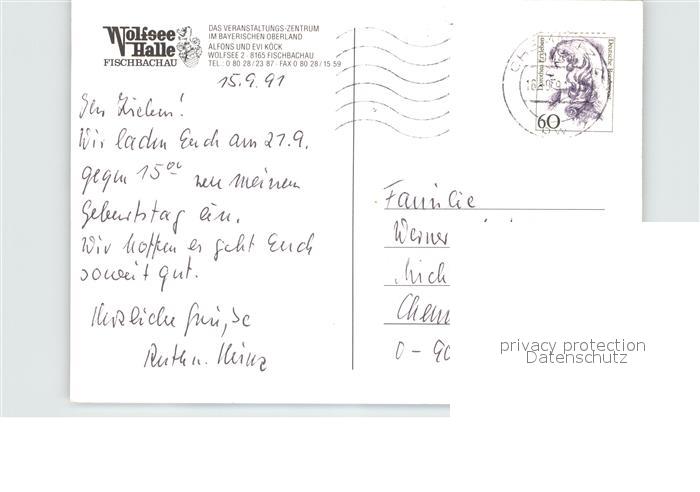 Wolfsee
Halle
FISCHBACHAU
DAS VERANSTALTUNGS-ZENTRUM
IM BAYERISCHEN OBERLAND
ALFONS UND EVI KÖCK
WOLFSEE 2 · 8165 FISCHBACHAU
TEL. 0 80 28 / 23 87 · FAX 0 80 28 / 15 59
15.9.91
Ihr Lieben!
Wir laden Euch am 21.9.
gegen 15 00 zu meinem
Geburtstag ein.
Wir hoffen es geht Euch
soweit gut.
Herzliche Grüße
Ruth u. Heinz
Dorothea Erxleben
Deutsche Bundespost
60
Familie
Werner
Rich
Chem
0-90
privacy protection
Datenschutz